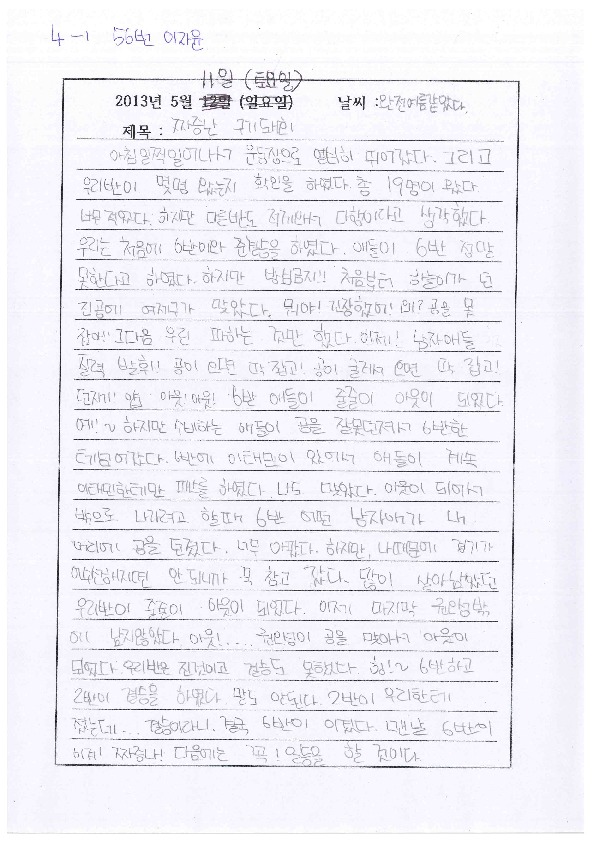 4-1 56번 이자윤
11일 (토요일)
2013년 5월 12일 (일요일) 날씨 : 완전여름같았다.
제목 : 짜증난 구기대회
아침일찍일어나서 운동장으로 열심히 뛰어갔다. 그리고
우리반이 몇명 왔는지 확인을 하였다. 총 19명이 왔다.
너무 적었다. 하지만 다른반도 적게와서 다행이다고 생각했다
우리는 처음에 6반이랑 을 하였다. 애들이 6반 정말
못한다고 하였다. 하지만 방심금지!! 처음부터 가 던
진공에 여자구가 맞았다. 뭐야! 긴장했어! 왜? 공을 못
잡아! 그다음 우린 피하는 것만 했다. 이제! 남자애들
실력 발휘!! 공이 오면 딱 잡고! 공이 굴러서 오면 딱 잡고!
던지기! 아웃! 아웃! 6반 애들이 줄줄이 아웃이 되었다.
예!~ 하지만 수비하는 애들이 공을 잘못던져서 6반한
테넘어갔다. 6반에 이태민이 있어서 애들이 계속
이태민한테만 패스를 하였다. 나도 맞았다. 아웃이 되어서
밖으로 나가려고 할때 6반 어떤 남자애가 내
머리에 공을 던졌다. 너무 아팠다. 하지만, 나때문에 경기가
안되니까 꾹 참고 갔다. 많이 살아남았던
우리반이 줄줄이 아웃이 되었다. 이제 마지막 권안성밖
에 남지않았다 아웃!.... 권안성이 공을 맞아서 아웃이
되었다 우리반은 진것이고 결승도 못했다 힝!~ 6반하고
2반이 결승을 하였다. 말도 안된다. 2반이 우리한테
졌는데... 결승이라니. 결국 6반이 이겼다. 맨날 6반이
이겨! 짜증나! 다음에는 꼭! 1등을 할 것이다.